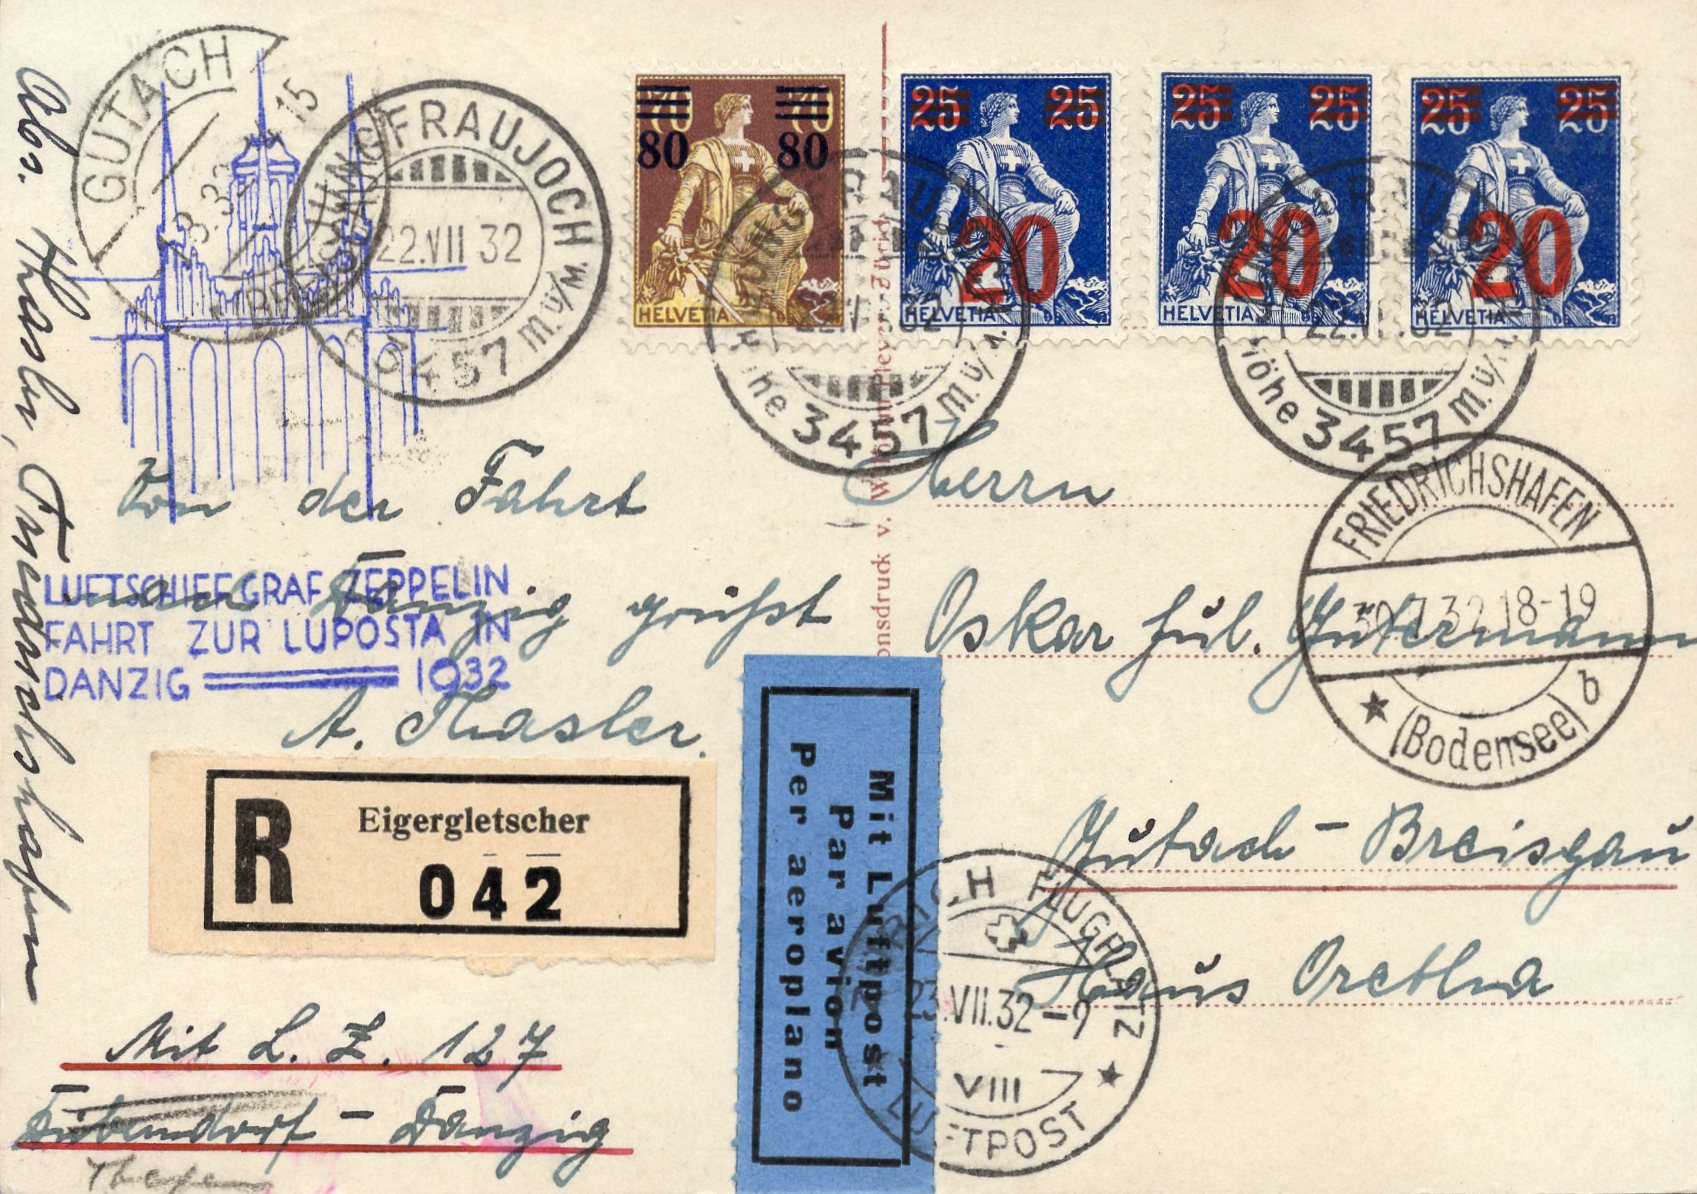 GUTACH
15
BREISGAU
JUNGFRAUJOCH
22.VII 32
3457 M.ü/M.
70 70
80 80
HELVETIA
25 25
20
HELVETIA
25 25
20
HELVETIA
25 25
20
HELVETIA
JUNGFRAUJOCH
Höhe 3457 M.ü/M.
JUNGFRAUJOCH
Höhe 3457 M.ü/M.
Abs. Hasler, Friedrichshafen
Von der Fahrt
nach Danzig grüßt
A. Hasler.
LUFTSCHIFF GRAF ZEPPELIN
FAHRT ZUR LUPOSTA IN
DANZIG 1932
Herrn
Oskar Jul. Gütermann
Gutach - Breisgau
Haus Oretlna
FRIEDRICHSHAFEN
30.7.32.18-19
(Bodensee) b
R
Eigergletscher
042
Mit Luftpost
Par avion
Per aeroplano
ZÜRICH FLUGPLATZ
23.VII.32-9
VIII
LUFTPOST
Mit L. Z. 127
Dübendorf - Danzig